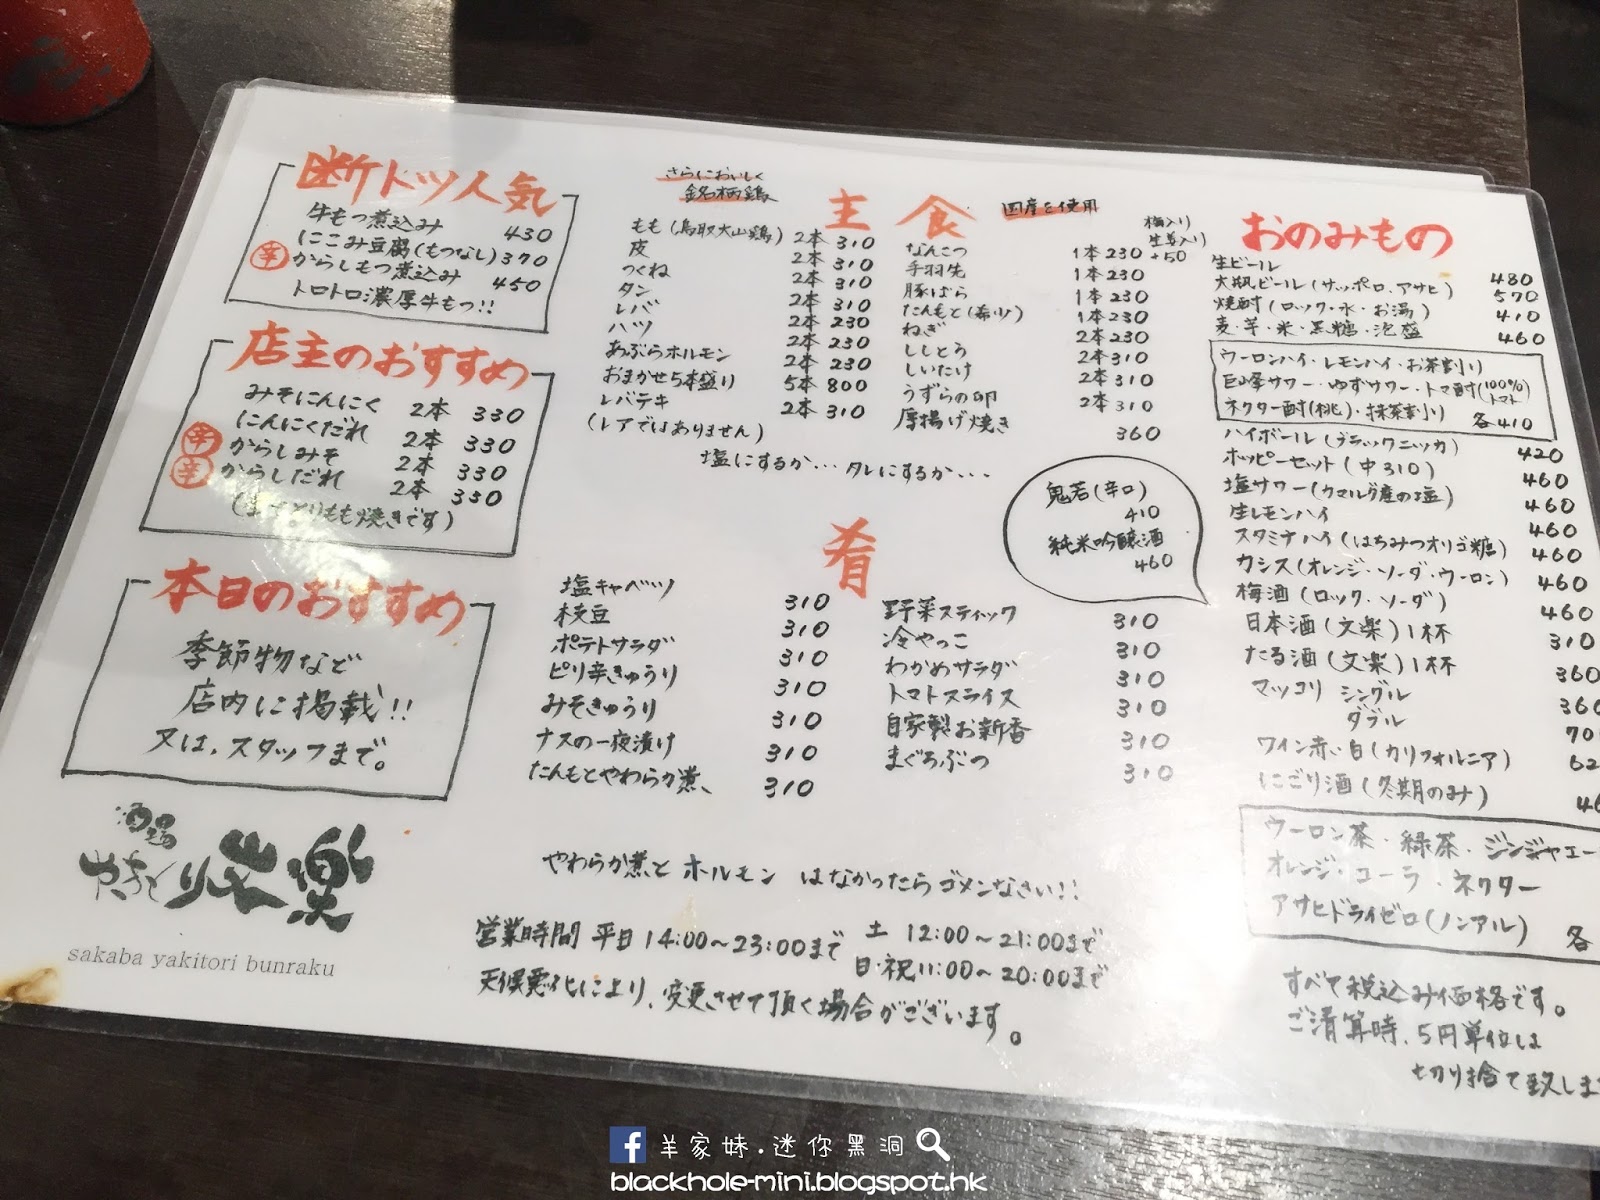 断トツ人気
牛もつ煮込み 430
にこみ豆腐(もつなし) 370
辛 からしもつ煮込み 450
トロトロ濃厚牛もつ!!
店主のおすすめ
みそにんにく 2本 330
にんにくだれ 2本 330
辛 からしみそ 2本 330
辛 からしだれ 2本 330
(すべてとりもも焼きです)
本日のおすすめ
季節物など
店内に掲載!!
又は、スタッフまで。
酒場
やきとり 文楽
sakaba yakitori bunraku
さらにおいしく
銘柄鶏
主食
国産を使用
もも(鳥取大山鶏) 2本 310
皮 2本 310
つくね 2本 310
タン 2本 310
レバ 2本 230
ハツ 2本 230
あぶらホルモン 2本 230
おまかせ5本盛り 5本 800
レバテキ 2本 310
(レアではありません)
梅入り
生姜入り
+50
なんこつ 1本 230
手羽先 1本 230
豚ばら 1本 230
たんもと(希少) 1本 230
ねぎ 2本 230
ししとう 2本 310
しいたけ 2本 310
うずらの卵 2本 310
厚揚げ焼き 360
塩にするか… タレにするか…
鬼若(辛口)
410
純米吟醸酒
460
肴
塩キャベツ 310
枝豆 310
ポテトサラダ 310
ピリ辛きゅうり 310
みそきゅうり 310
ナスの一夜漬け 310
たんもとやわらか煮 310
野菜スティック 310
冷やっこ 310
わかめサラダ 310
トマトスライス 310
自家製お新香 310
まぐろぶつ 310
やわらか煮と ホルモン はなかったらゴメンなさい!!
営業時間 平日 14:00～23:00まで 土 12:00～21:00まで
日・祝 11:00～20:00まで
天候悪化により、変更させて頂く場合がございます。
おのみもの
生ビール 480
大瓶ビール(サッポロ、アサヒ) 570
焼酎(ロック・水・お湯) 410
麦・芋・米・黒糖・泡盛 460
ウーロンハイ・レモンハイ・お茶割り
巨峰サワー・ゆずサワー・トマ酎(100%トマト)
ネクター酎(桃)・抹茶割り 各410
ハイボール(ブラックニッカ) 420
ホッピーセット(中310) 460
塩サワー(カマルグ産の塩) 460
生レモンハイ 460
スタミナハイ(はちみつオリゴ糖) 460
カシス(オレンジ・ソーダ・ウーロン) 460
梅酒(ロック・ソーダ) 460
日本酒(文楽)1杯 310
たる酒(文楽)1杯 360
マッコリ シングル 360
ダブル 70
ワイン赤・白(カリフォルニア) 62
にごり酒(冬期のみ) 46
ウーロン茶・緑茶・ジンジャエー
オレンジ・コーラ・ネクター
アサヒドライゼロ(ノンアル) 各
すべて税込み価格です。
ご清算時、5円単位は
切り捨て致しま
羊家妹.迷你黑洞
blackhole-mini.blogspot.hk